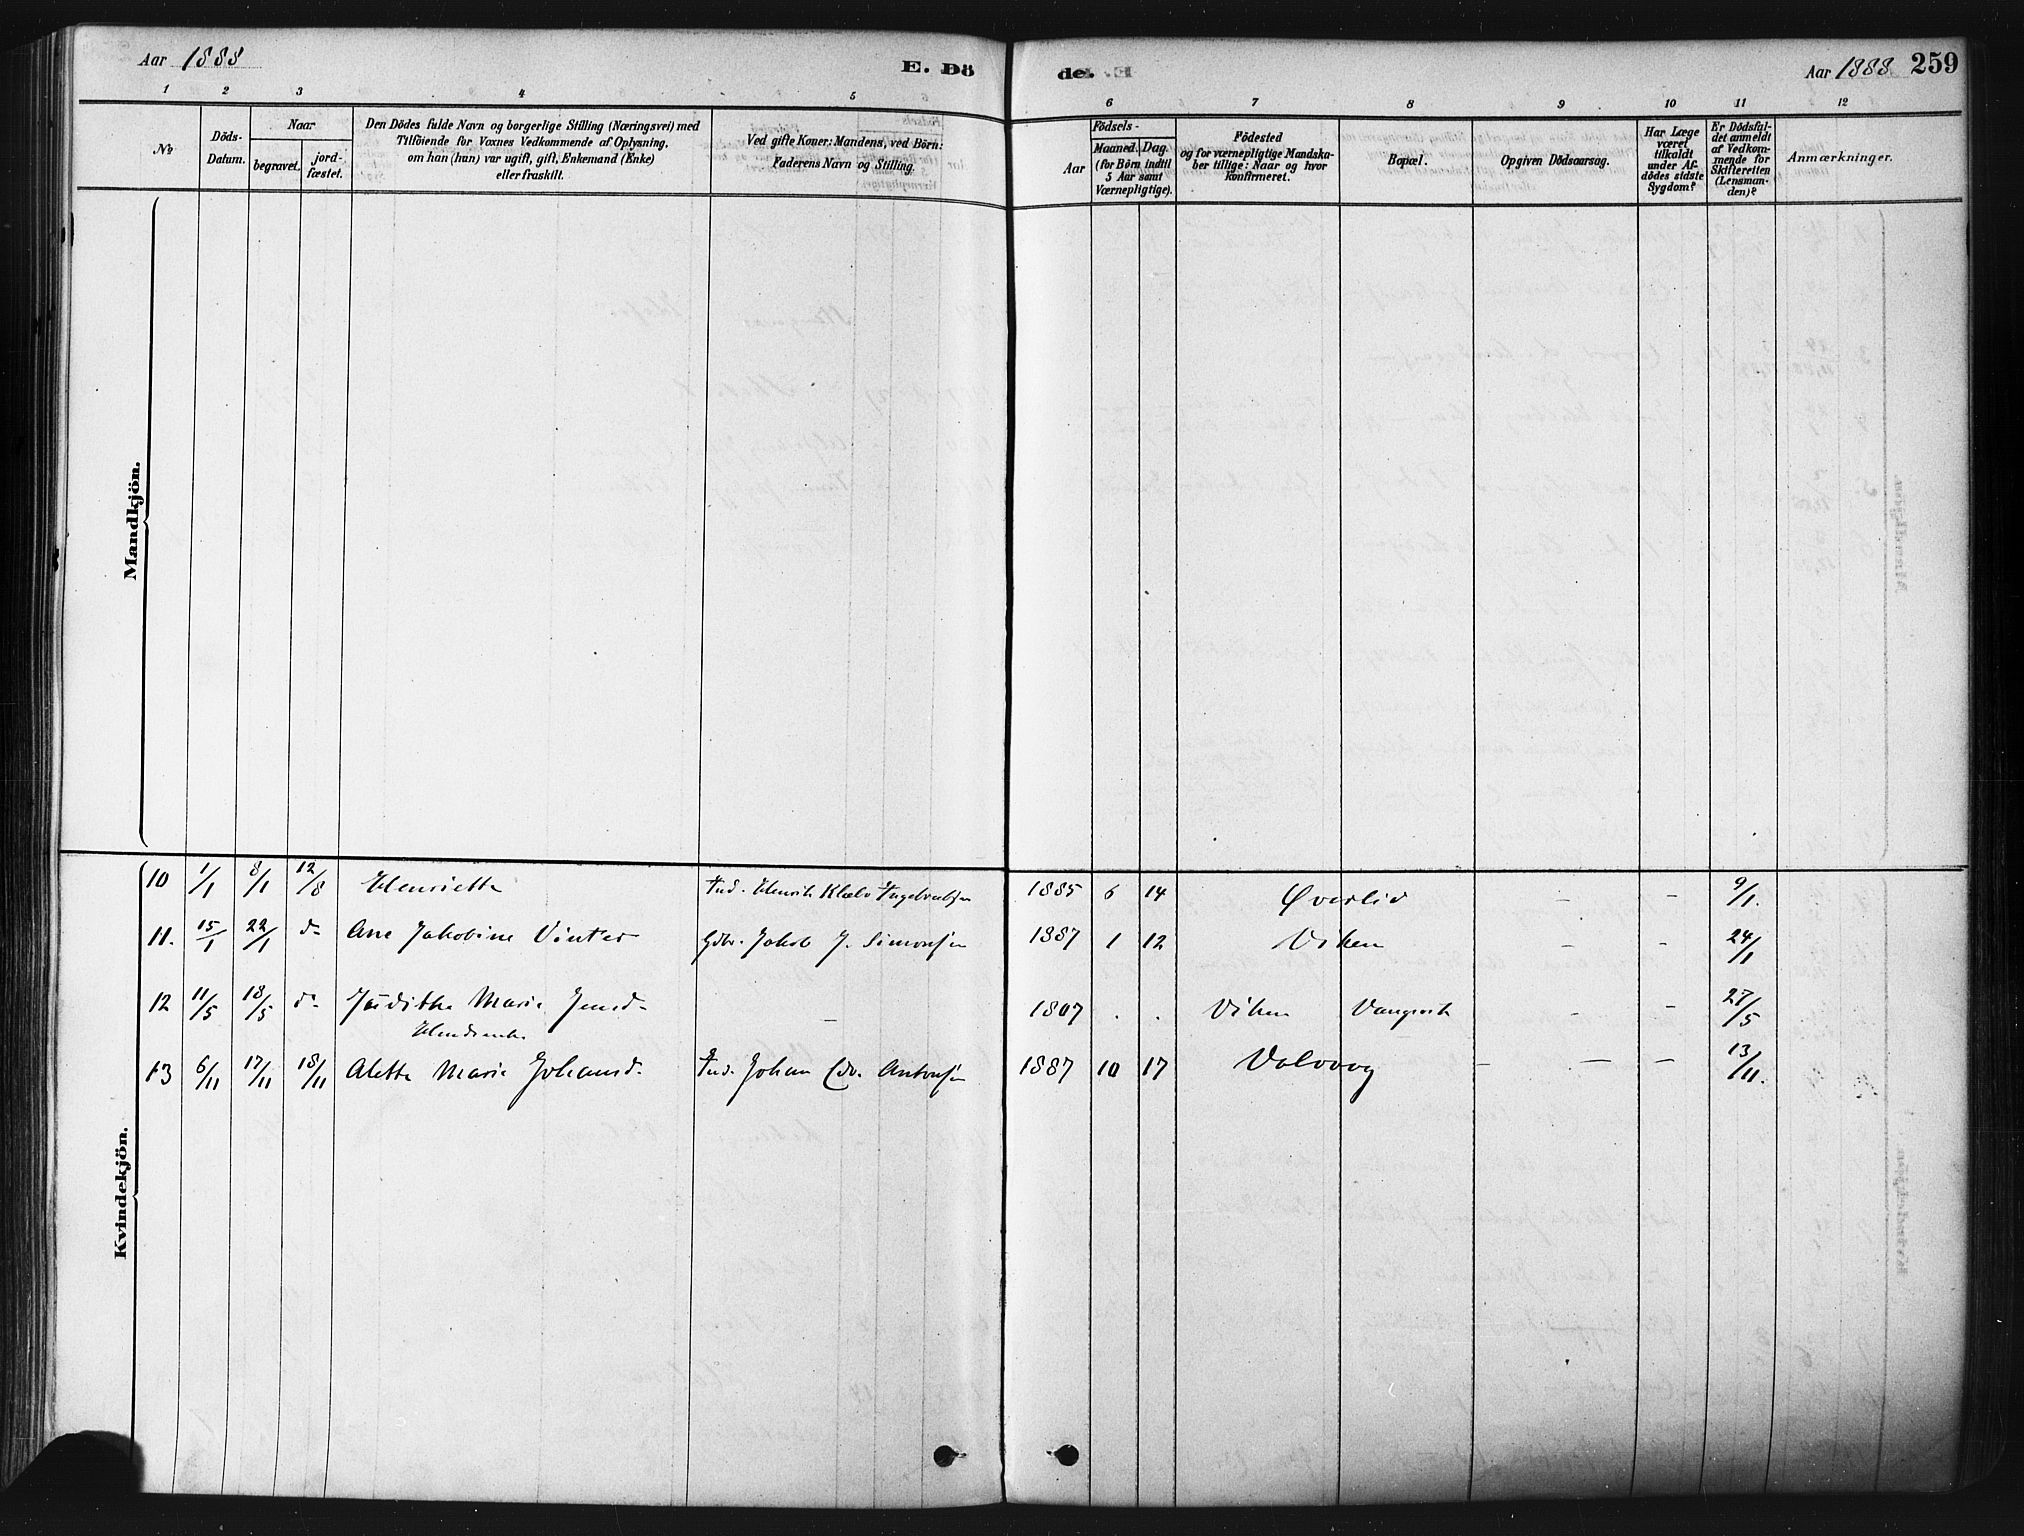 Aar 1888
E. Dö
de.
Aar 1888 259
1 2 3 4 5 6 7 8 9 10 11 12
№
Döds-Datum.
Naar
begravet.
jord-fæstet.
Den Dödes fulde Navn og borgerlige Stilling (Næringsvei) med
Tilföiende for Voxnes Vedkommende af Oplysning,
om han (hun) var ugift, gift, Enkemand (Enke)
eller fraskilt.
Ved gifte Koner: Mandens, ved Börn:
Faderens Navn og Stilling.
Födsels-
Aar
Maaned. Dag.
(for Börn indtil
5 Aar samt
Værnepligtige).
Födested
og for værnepligtige Mandska-
ber tillige: Naar og hvor
konfirmeret.
Bopæl.
Opgiven Dödsaarsag.
Har Læge
været
tilkaldt
under Af-
dödes sidste
Sygdom?
Er Dödsfal-
det anmeldt
af Vedkom-
mende for
Skifteretten
(Lensman-
den)?
Anmærkninger.
Mandkjön.
Kvindekjön.
10 1/1 8/1 12/8 Henriette Ind. Henrik Klæbo Ingebrigtsen 1885 6 14 Øverlid - - 9/1.
11. 15/1 22/1 do Ane Jakobine Vinter Gdbr. Jakob J. Simonsen 1887 1 12 Viken - - 24/1
12 11/5 18/5 do Judithe Marie Jensd. - 1807 . . Viken Vangsvik - - 27/5
13 6/11 17/11 18/11 Alette Marie Johansd. Ind. Johan Edv. Antonsen 1887 10 17 Valvaag - - - 13/11.